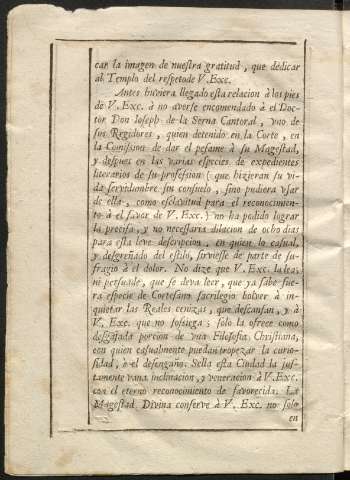 car la imagen de nuestra gratitud, que dedicar
al Templo del respeto de V. Exc.
Antes huviera llegado esta relacion à los pies
de V. Exc. à no averse encomendado à el Doc-
tor Don Ioseph de la Serna Cantoral, vno de
sus Regidores, quien detenido en la Corte, en
la Comission de dar el pesame à su Magestad,
y despues en las varias especies de expedientes
literarios de su professïon (que hizieran su vi-
da servidumbre sin consuelo, sino pudiera vsar
de ella, como esclavitud para el reconocimien-
to à el favor de V. Exc.) no ha podido lograr
la precisa, y no necessaria dilacion de ocho dias
para esta leve descripcion, en quien lo casual,
y desgreñado del estilo, sirviesse de parte de su-
fragio à el dolor. No dize que V. Exc. la lea,
ni persuade, que se deva leer, que ya sabe fue-
ra especie de Cortesano sacrilegio bolver à in-
quietar las Reales cenizas, que descansan, y à
V. Exc. que no sossiega; solo la ofrece como
desgajada porcion de vna Filosofia Christiana,
con quien casualmente puedan tropezar la curio-
sidad, ò el desengaño. Sella esta Ciudad la jus-
tamente vana inclinacion, y veneracion à V. Exc.
con el eterno reconocimiento de favorecida. La
Magestad Divina conserve à V. Exc. no solo
en